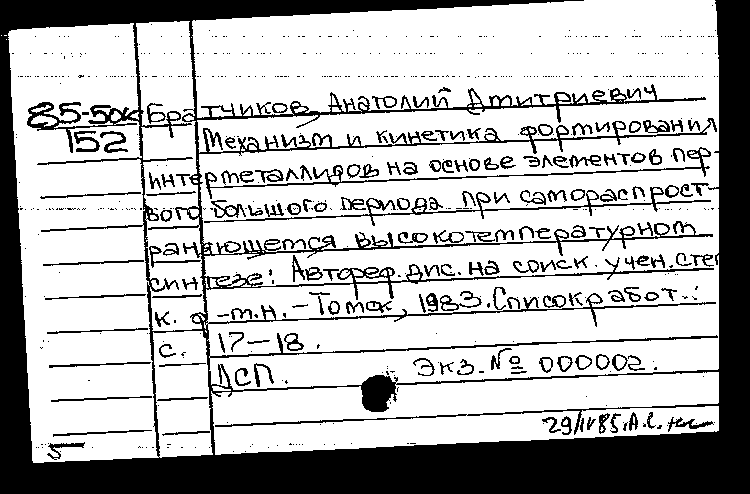 85-50к Братчиков, Анатолий Дмитриевич
152 Механизм и кинетика формирования
интерметаллидов на основе элементов пер-
вого большого периода при самораспрост-
раняющемся высокотемпературном
синтезе: Автореф. дис. на соиск. учен. степ
к. ф.-м.н. - Томск, 1983. Список работ.:
с. 17-18.
ДСП. Экз. № 000002.
29/IV85. А.С.
5